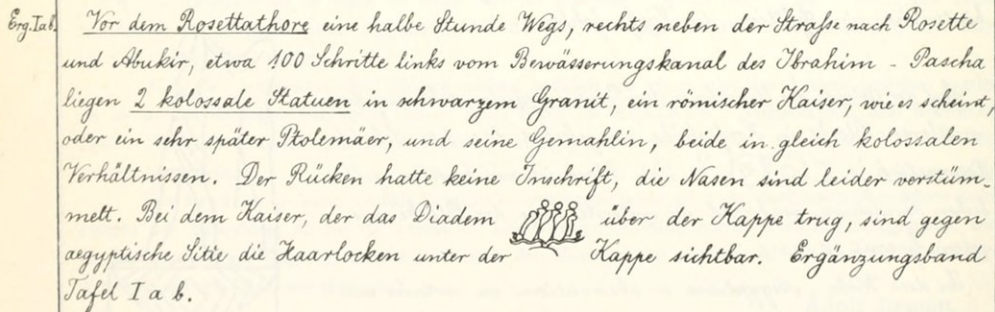 Erg. I ab. Vor dem Rosettathore eine halbe Stunde Wegs, rechts neben der Straſse nach Rosette
und Abukir, etwa 100 Schritte links vom Bewässerungskanal des Ibrahim - Pascha
liegen 2 kolossale Statuen in schwarzem Granit, ein römischer Kaiser, wie es scheint,
oder ein sehr später Ptolemäer, und seine Gemahlin, beide in gleich kolossalen
Verhältnissen. Der Rücken hatte keine Inschrift, die Nasen sind leider verstüm-
melt. Bei dem Kaiser, der das Diadem über der Kappe trug, sind gegen
aegyptische Sitte die Haarlocken unter der Kappe sichtbar. Ergänzungsband
Tafel I a b.